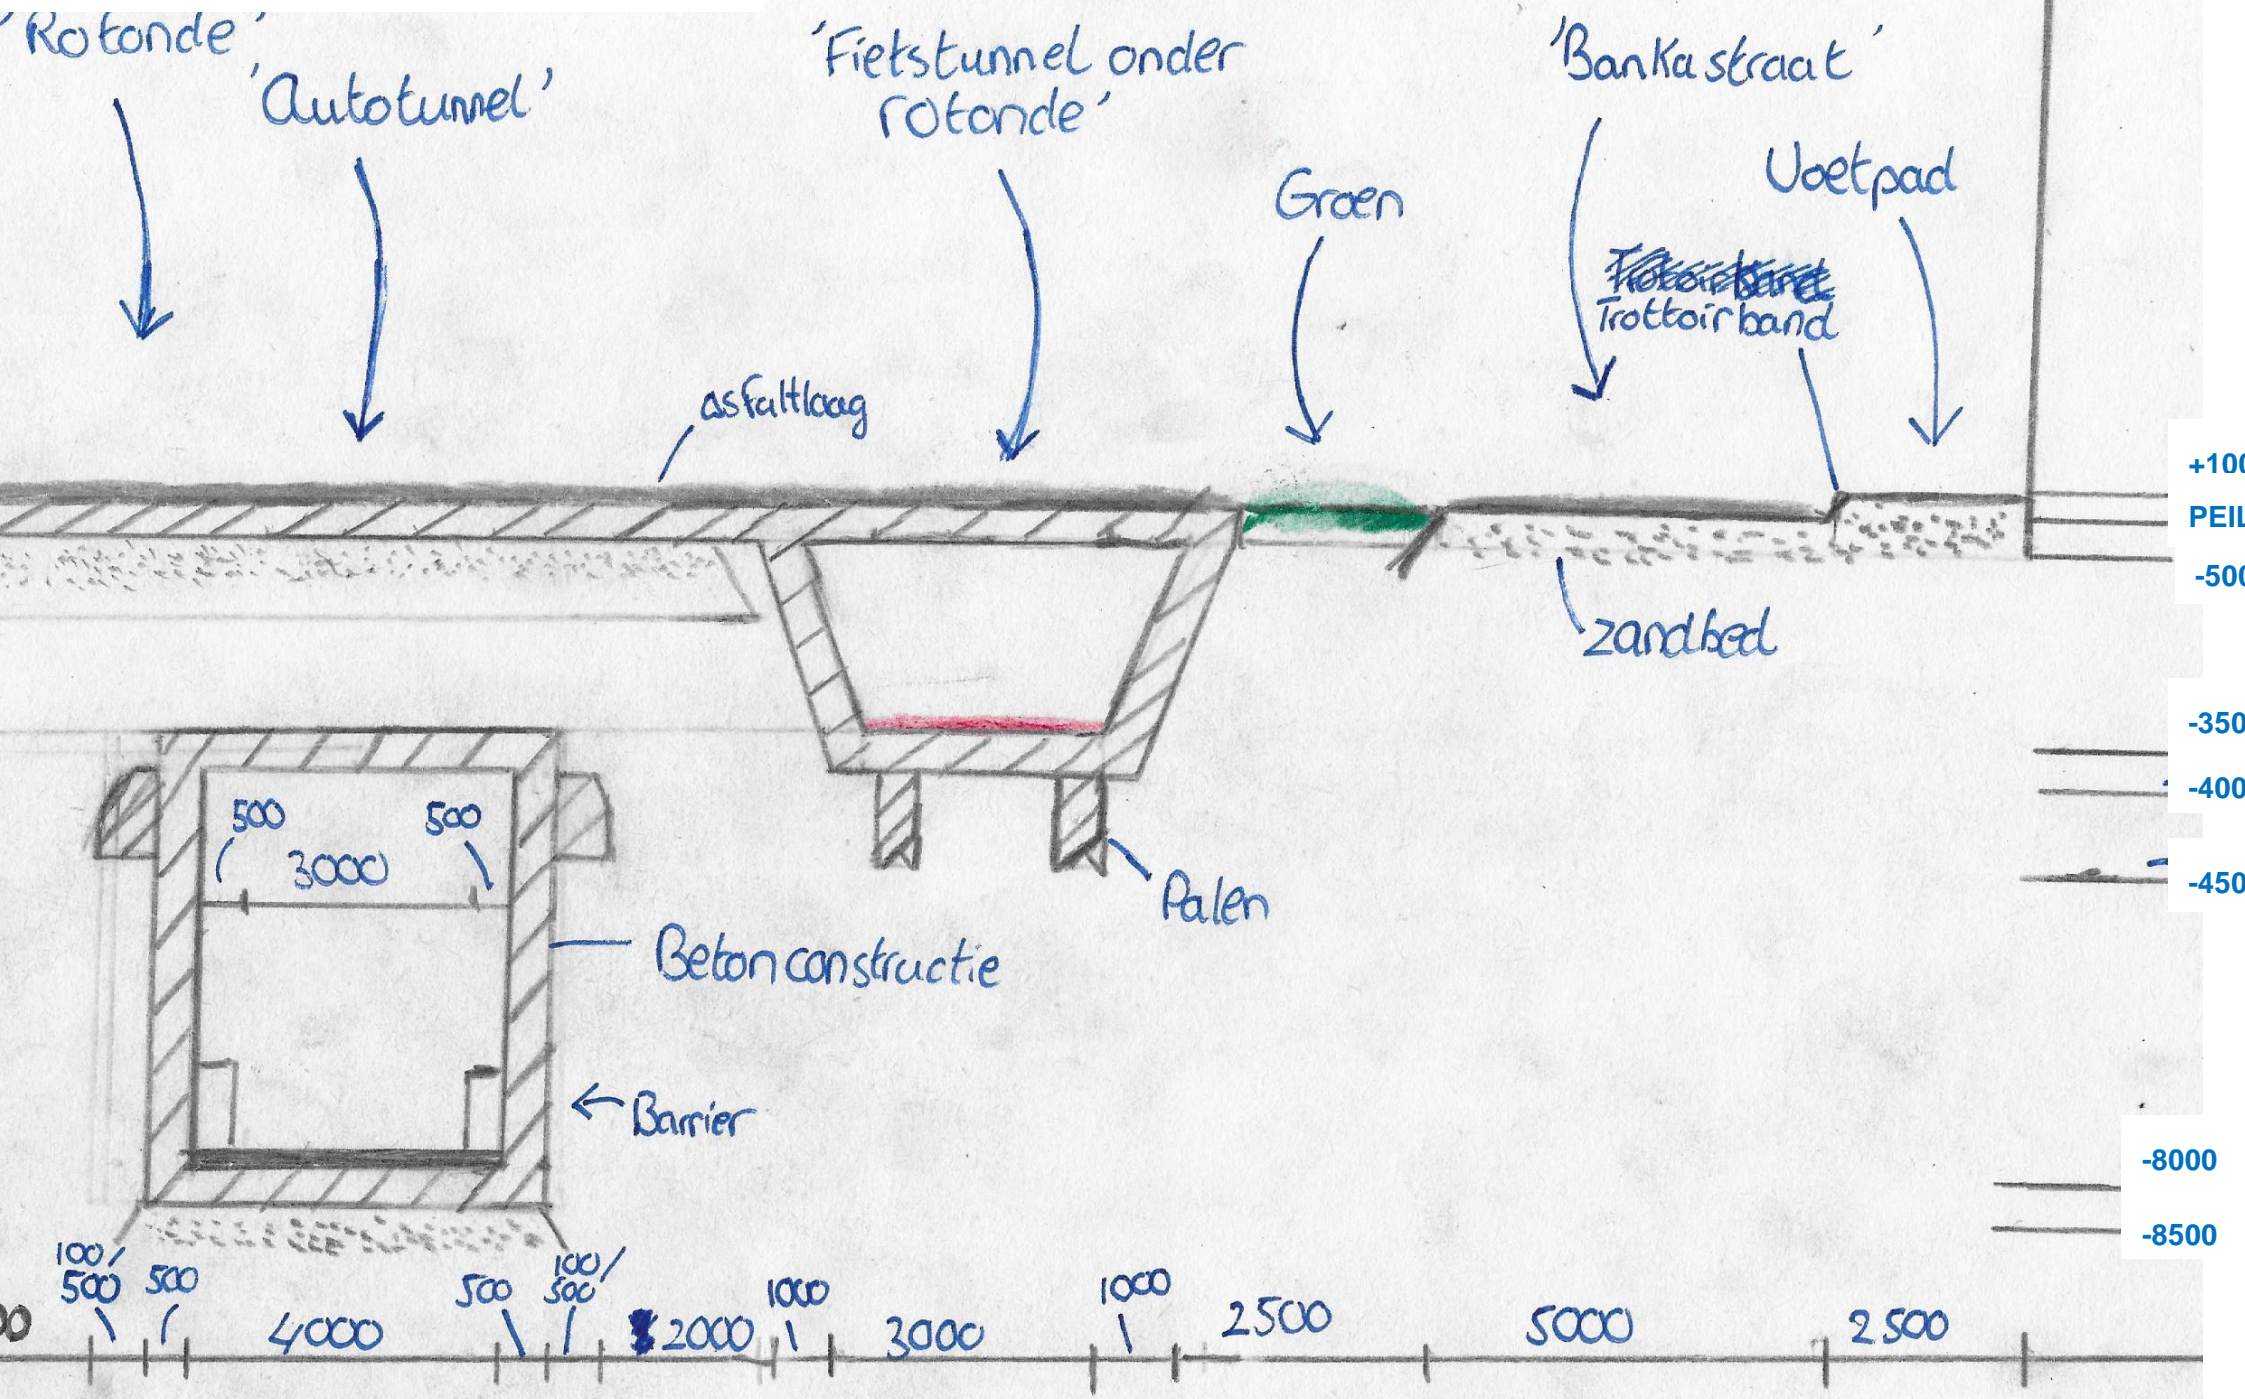 'Rotonde'
'Autotunnel'
'Fietstunnel onder
rotonde'
'Bankastraat'
Voetpad
Groen
Trottoirband
asfaltlaag
+100
PEIL
-500
zandbed
-350
-400
-450
500
500
3000
Palen
Betonconstructie
Barrier
-8000
-8500
100/
500
500
4000
500
100/
500
2000
1000
3000
1000
2500
5000
2500